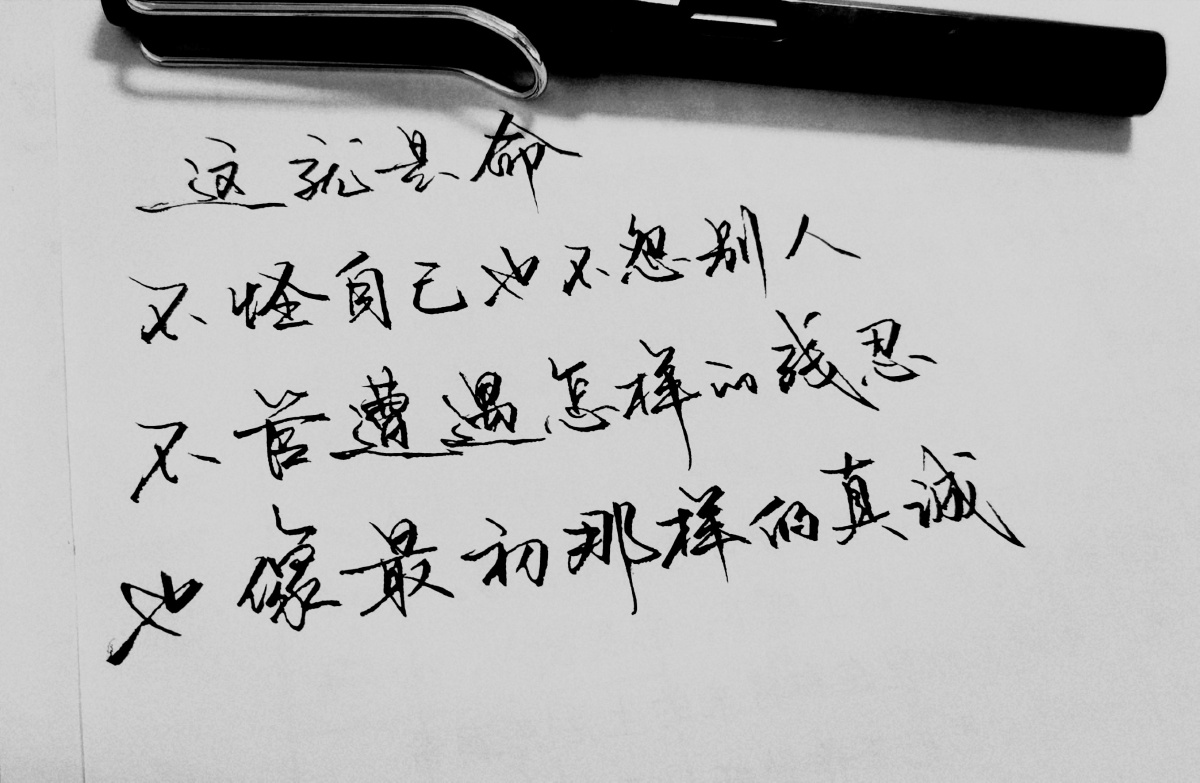 这就是命
不怪自己也不怨别人
不管遭遇怎样的残忍
也像最初那样的真诚